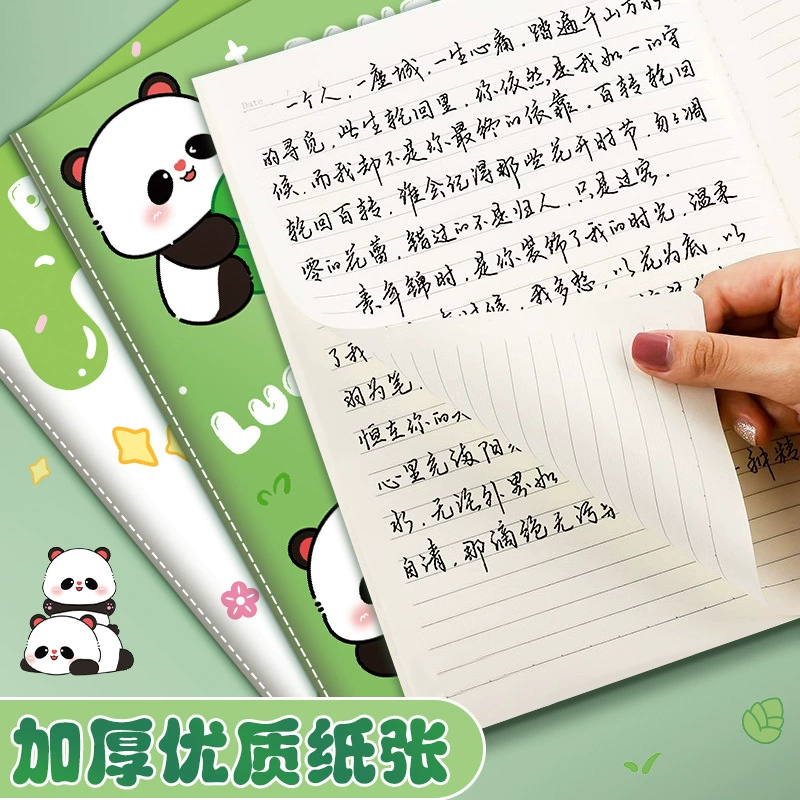 Date
一个人,一座城,一生心痛,踏遍千山万水
的寻觅,此生轮回里,你依然是我如一的守
候,而我却不是你最终的依靠,百转轮回
轮回百转,谁会记得那些花开时节,匆匆凋
零的花蕾,错过的不是归人,只是过客.
素年锦时,是你装饰了我的时光,温柔
时候,我多想,以花为底,以
了我
羽为笔.
恒在你的
心里充
水,无论外界如
自清,那滴绝无污
一种精
Lu
加厚优质纸张